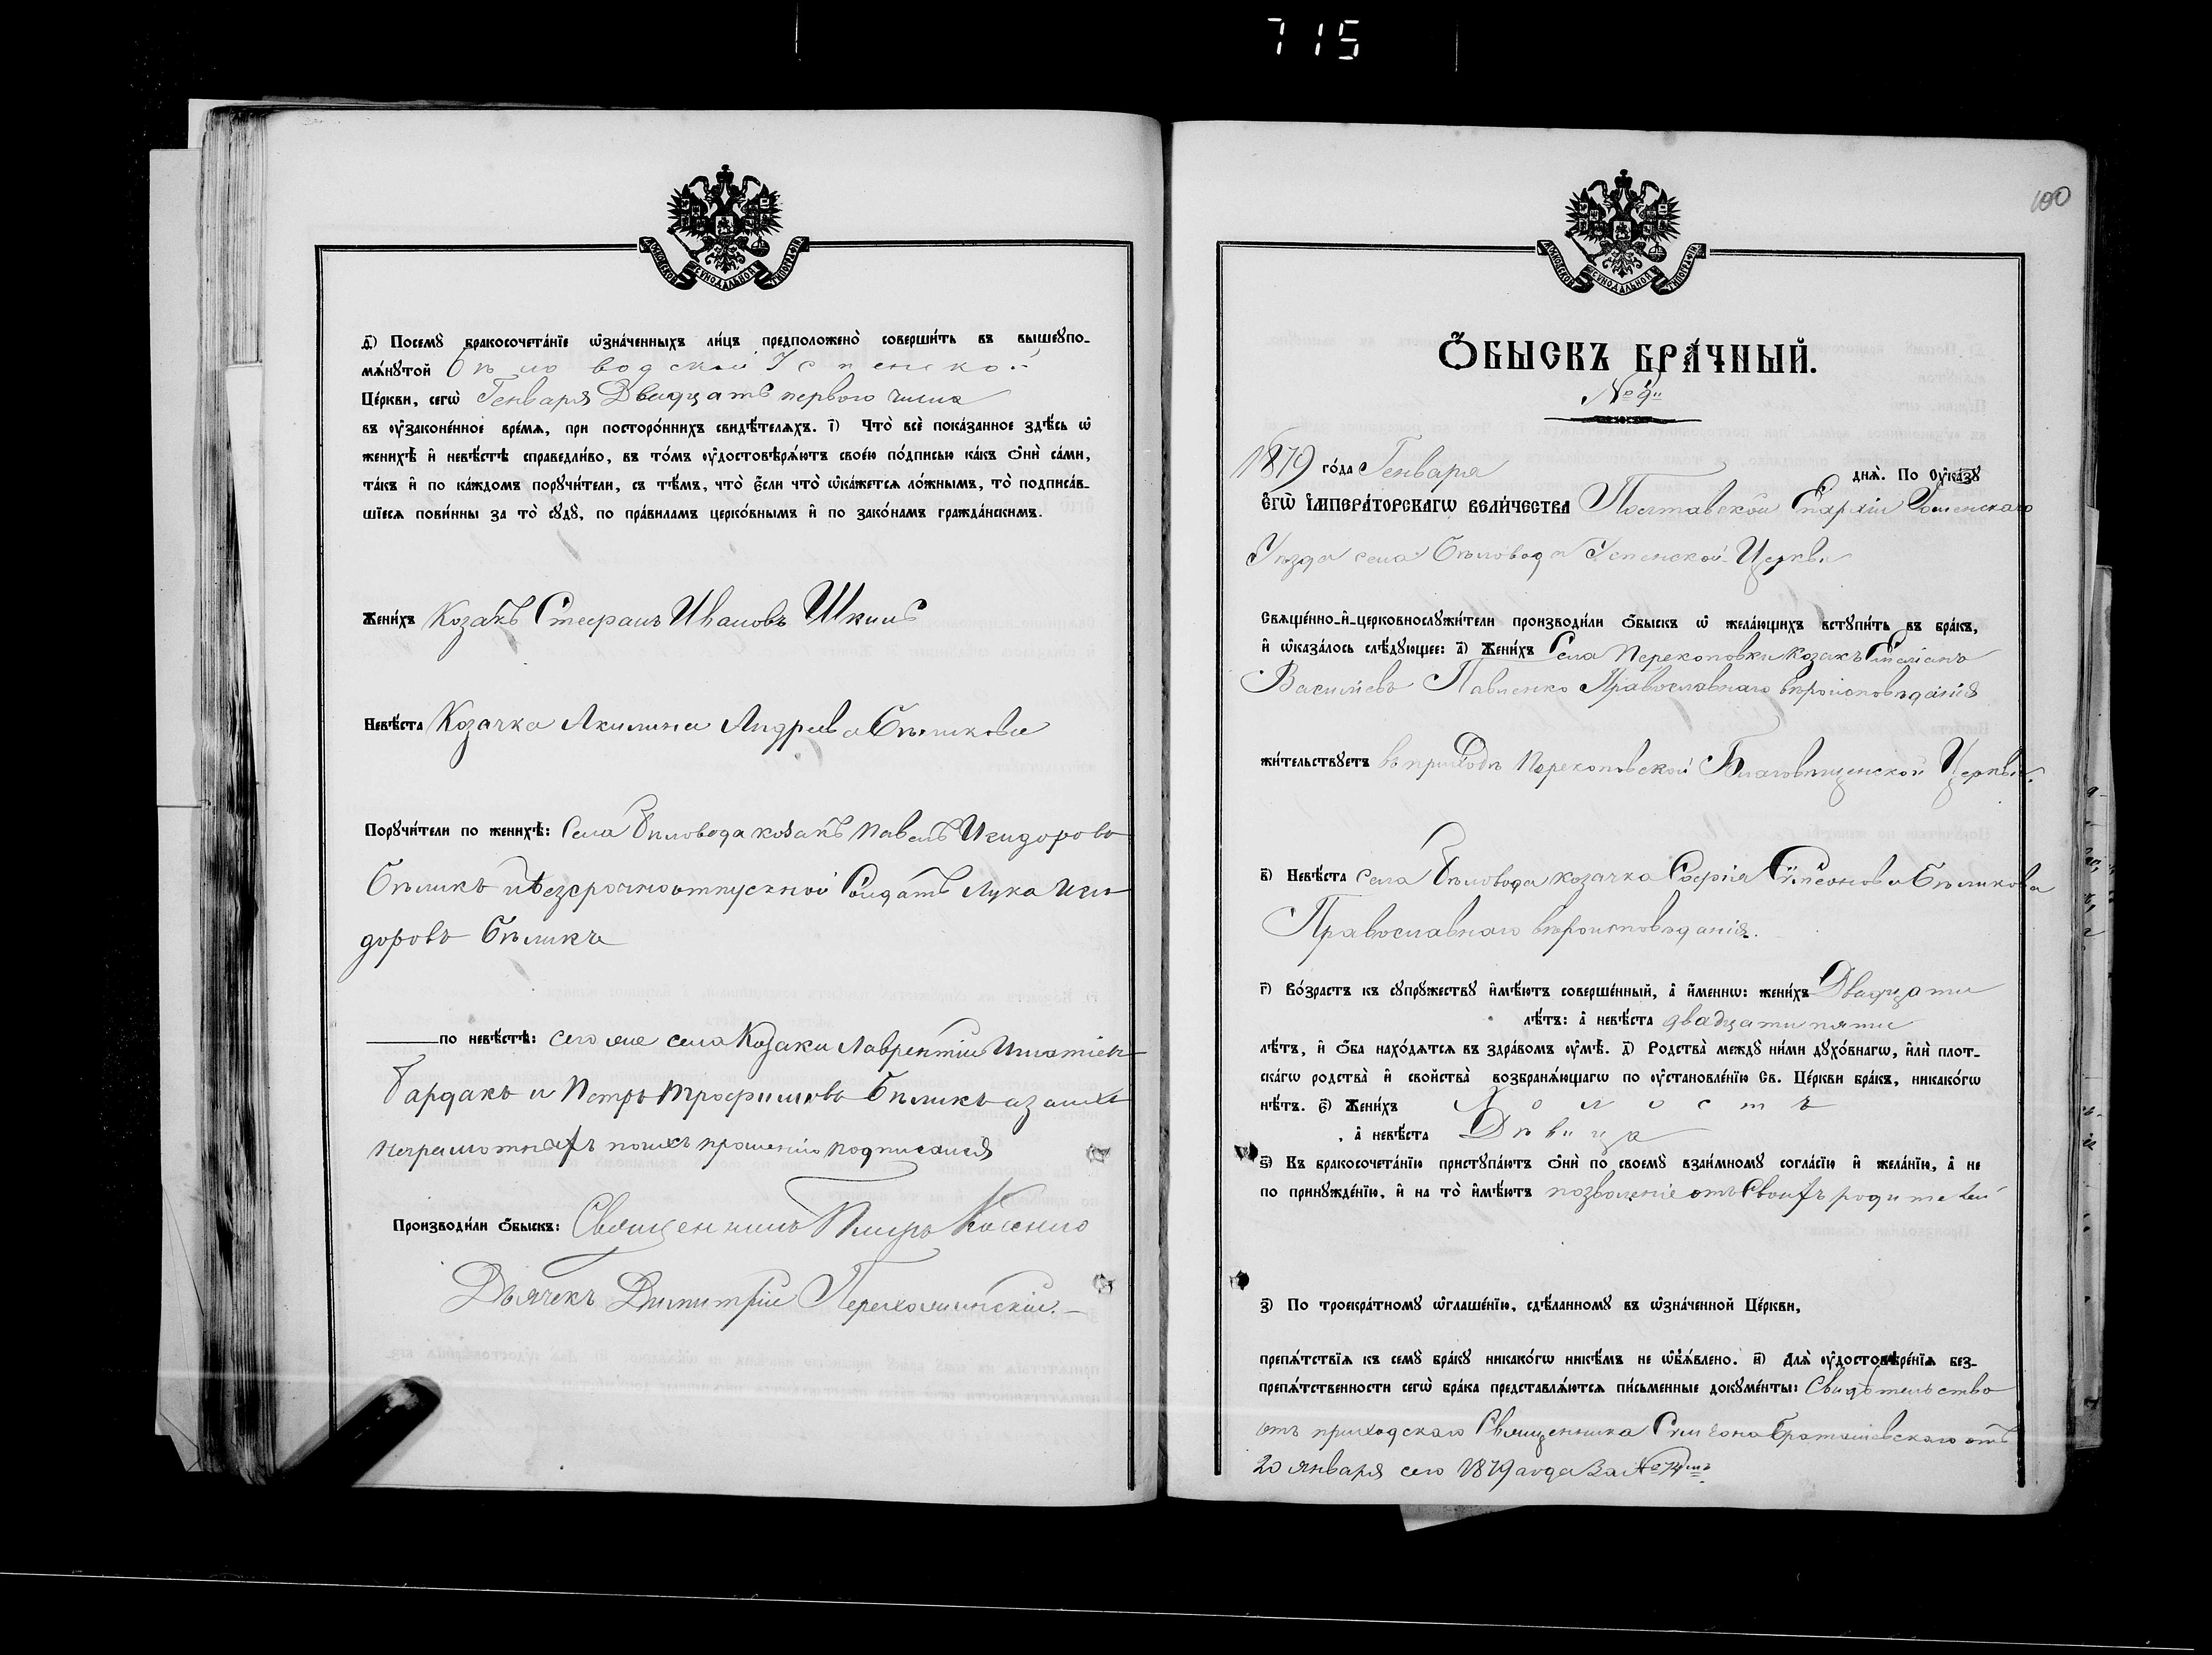 715
МОСКОВСКОЙ СѴНОДАЛЬНОЙ ТИПОГРАФІИ
д҃) Посемꙋ бракосочета́нїе ѡ҆зна́ченныхъ ли́цъ предположено̀ соверши́ть въ вышеꙋпо-
мѧ́нꙋтой Бѣловодской Успенской
Це́ркви, сегѡ̀ Генваря Двадцать первого числа
въ ᲂу҆зако́ненное вре́мѧ, при посторо́ннихъ свидѣ́телѧхъ. і҃) Что̀ всѐ пока́занное здѣ́сь ѡ҆
женихѣ̀ и҆ невѣ́стѣ справедли́во, въ то́мъ ᲂу҆достовѣрѧ́ютъ свое́ю по́дписью ка́къ ѻ҆нѝ са́ми,
та́къ и҆ по ка́ждомъ порꙋчи́тели, съ тѣ́мъ, что̀ є҆́сли что̀ ѡ҆ка́жетсѧ ло́жнымъ, то̀ подписа́в-
шїесѧ пови́нны за то̀ сꙋдꙋ̀, по пра́виламъ церко́внымъ и҆ по зако́намъ гражда́нскимъ.
Жени́хъ Козакъ Стефанъ Ивановъ Шкиль
Невѣ́ста Козачка Акилина Андреева Бѣликова
Порꙋчи́тели по женихѣ̀: Села Бѣловода козакъ Павелъ Исидоровъ
Бѣликъ и безсрочноотпускной Солдатъ Лука Иси-
доровъ Бѣликъ
по невѣ́стѣ: сего же села Козаки Лаврентій Игнатіевъ
Бардакъ и Петръ Трофимовъ Бѣликъ а за ихъ
неграмотныхъ по ихъ прошенію подписался
Производи́ли ѻ҆́быскъ: Священникъ Петръ
Дьячекъ Димитрій
100
МОСКОВСКОЙ СѴНОДАЛЬНОЙ ТИПОГРАФІИ
Ѻ҆́БЫСКЪ БРА́ЧНЫЙ.
№ 9й
1879 го́да Генваря днѧ̀. По Оу҆ка́зꙋ
Є҆ГѠ̀ И҆МПЕРА́ТОРСКАГѠ ВЕЛИ́ЧЕСТВА Полтавской Епархіи Роменскаго
Уѣзда села Бѣловода Успенской Церкви
Свѧще́нно-и҆-церковнослꙋжи́тели производи́ли ѻ҆́быскъ ѡ҆ жела́ющихъ встꙋпи́ть въ бра́къ,
и҆ ѡ҆каза́лось слѣ́дꙋющее: а҃) Жени́хъ Села Перекоповки козакъ Емеліанъ
Васильевъ Павленко Православнаго вѣроисповѣданія
жи́тельствꙋетъ въ приходѣ Перекоповской Благовѣщенской Церкви.
в҃) Невѣ́ста села Бѣловода козачка Софія Сѵмеонова Бѣликова
Православнаго вѣроисповѣданія.
г҃) Во́зрастъ къ сꙋпрꙋ́жествꙋ и҆мѣ́ютъ соверше́нный, а҆ и҆́меннѡ: жени́хъ Двадцати
лѣ́тъ: а҆ невѣ́ста двадцати пяти
лѣ́тъ, и҆ ѻ҆́ба нахо́дѧтсѧ въ здра́вомъ ᲂу҆мѣ̀. д҃) Родства̀ междꙋ̀ ни́ми дꙋхо́внагѡ, и҆лѝ плот-
ска́гѡ родства̀ и҆ сво́йства̀ возбранѧ́ющагѡ по ᲂу҆становле́нїю Св. Це́ркви бра́къ, никако́гѡ
нѣ́тъ. є҃) Жени́хъ Холостъ
, а҆ невѣ́ста Дѣвица
ѕ҃) Къ бракосочета́нїю пристꙋпа́ютъ ѻ҆нѝ по своемꙋ̀ взаи́мномꙋ согла́сїю и҆ жела́нїю, а҆ не
по принꙋжде́нїю, и҆ на то̀ и҆мѣ́ютъ позволеніе отъ Своихъ родителей
з҃) По троекра́тномꙋ ѡ҆глаше́нїю, сдѣ́ланномꙋ въ ѡ҆зна́ченной Це́ркви,
препѧ́тствїѧ къ семꙋ̀ бра́кꙋ никако́гѡ никѣ́мъ не ѡ҆б̾ѧ́влено. и҃) Длѧ̀ ᲂу҆достовѣре́нїѧ без-
препѧ́тственности сегѡ̀ бра́ка представлѧ́ютсѧ пи́сьменные докꙋме́нты: Свидѣтельство
отъ приходскаго Священника Сѵмеона Браташевскаго отъ
20 января сего 1879 года За № 14мъ